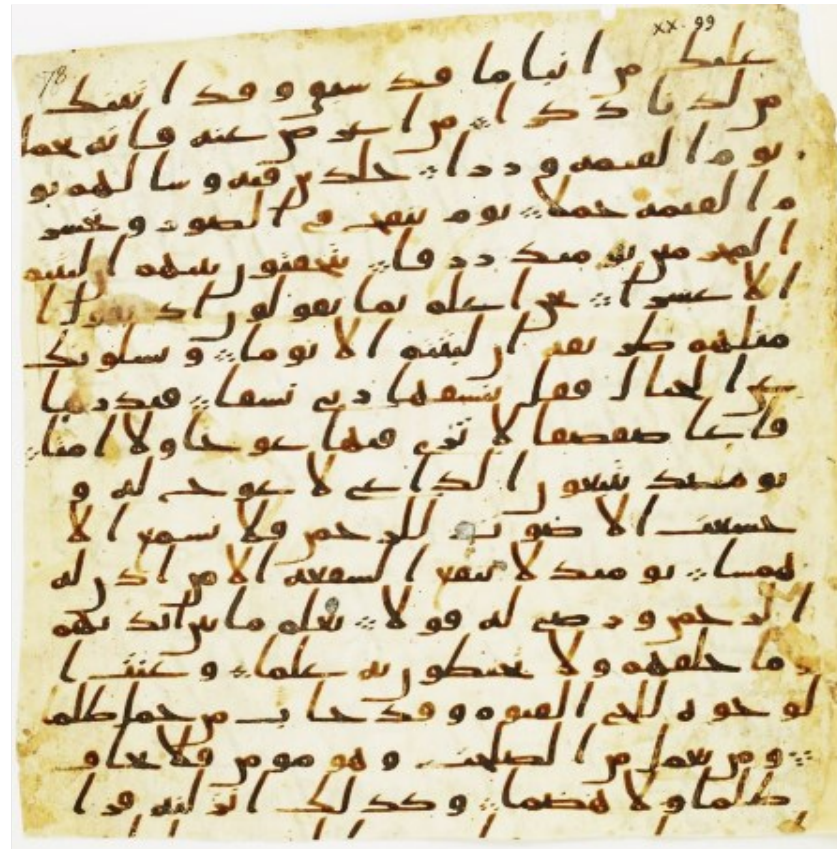 XX. 99
78
عليك من انبا ما قد سبق وقد اتينك
من لدنا ذكرا ۛ من اعرض عنه فانه يحمل
يوم القيمه وزرا ۛ خلدين فيه وسا لهم يو
م القيمه حملا ۛ يوم ينفخ في الصور ونحشر
المجرمين يومئذ زرقا ۛ يتخفتون بينهم ان لبثتم
الا عشرا ۛ نحن اعلم بما يقولون اذ يقول ا
مثلهم طريقه ان لبثتم الا يوما ۛ ويسلونك
عن الجبال فقل ينسفها ربي نسفا ۛ فيذرها
قاعا صفصفا لا ترى فيها عوجا ولا امتا ۛ
يومئذ يتبعون الداعي لا عوج له و
خشعت الاصوت للرحمن فلا تسمع الا
همسا ۛ يومئذ لا تنفع الشفعه الا من اذن له
الرحمن ورضي له قولا ۛ يعلم ما بين ايديهم
وما خلفهم ولا يحيطون به علما ۛ وعنت ا
لوجوه للحي القيوم وقد خاب من حمل ظلما
ۛ ومن يعمل من الصلحت وهو مومن فلا يخاف
ظلما ولا هضما ۛ وكذلك انزلنه قرا